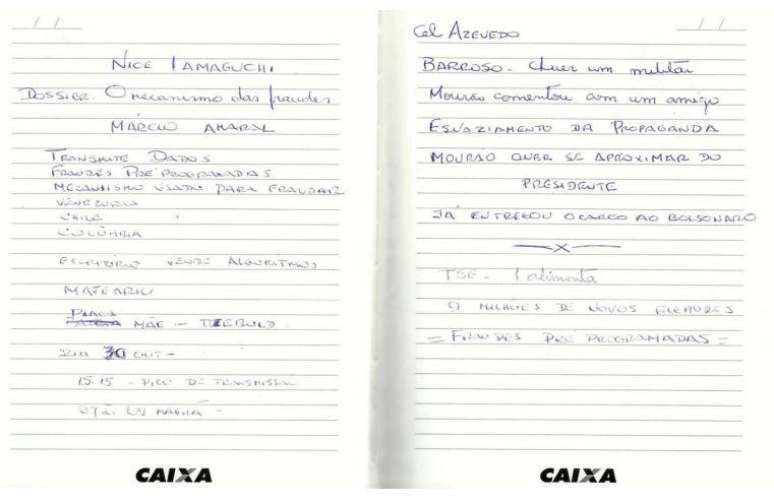 / /
NICE YAMAGUCHI
DOSSIER. O mecanismo das fraudes
MÁRCIO AMARAL
TRANSMITE DADOS
FRAUDES PRÉ PROGRAMADAS
MECANISMO USADO PARA FRAUDAR
VENEZUELA
CHILE
COLÔMBIA
ESCRITÓRIO VENDE ALGORITMOS
PLACA
MÃE -
DIA 30
15:15 - PICO DE TRANSMISSÃO
CAIXA
Cel AZEVEDO
/ /
BARROSO. Quer um militar
Mourão comentou com um amigo
ESVAZIAMENTO DA PROPAGANDA
MOURÃO QUER SE APROXIMAR DO
PRESIDENTE
JÁ ENTREGOU O CARGO AO BOLSONARO
X
TSE - alimenta
9 MILHÕES DE NOVOS ELEITORES
= FRAUDES PRÉ PROGRAMADAS =
CAIXA